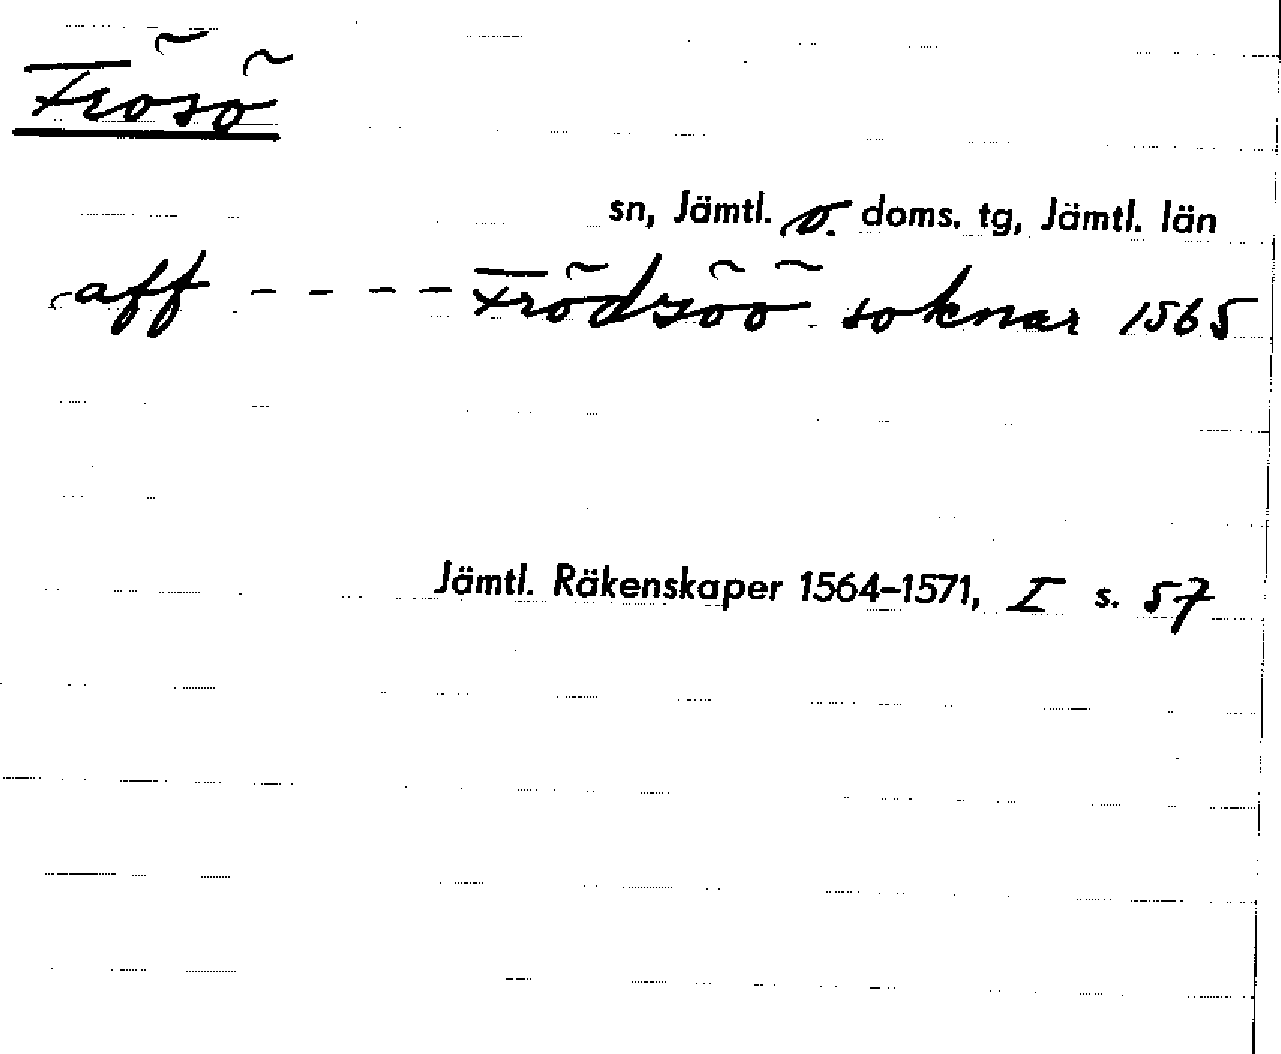 Frösö
sn, Jämtl. ö. doms. tg, Jämtl. län
aff - - - - Frödzöö soknar 1565
Jämtl. Räkenskaper 1564–1571, I s. 57